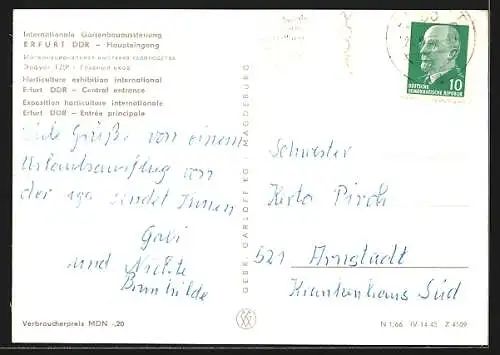 Internationale Gartenbauausstellung
ERFURT DDR – Haupteingang
Международная выставка садоводства
Эрфурт ГДР – Главный вход
Horticulture exhibition international
Erfurt DDR – Central entrance
Exposition horticulture internationale
Erfurt DDR – Entrée principale
Viele Grüße von einem
Urlaubsausflug von
der iga sendet Ihnen
Gabi
und Nichte
Brunhilde
Verbraucherpreis MDN -,20
GEBR. GARLOFF KG · MAGDEBURG
10
DEUTSCHE
DEMOKRATISCHE REPUBLIK
Schwester
521 Arnstadt
Krankenhaus Süd
N 1/66 IV-14-45 Z 4109